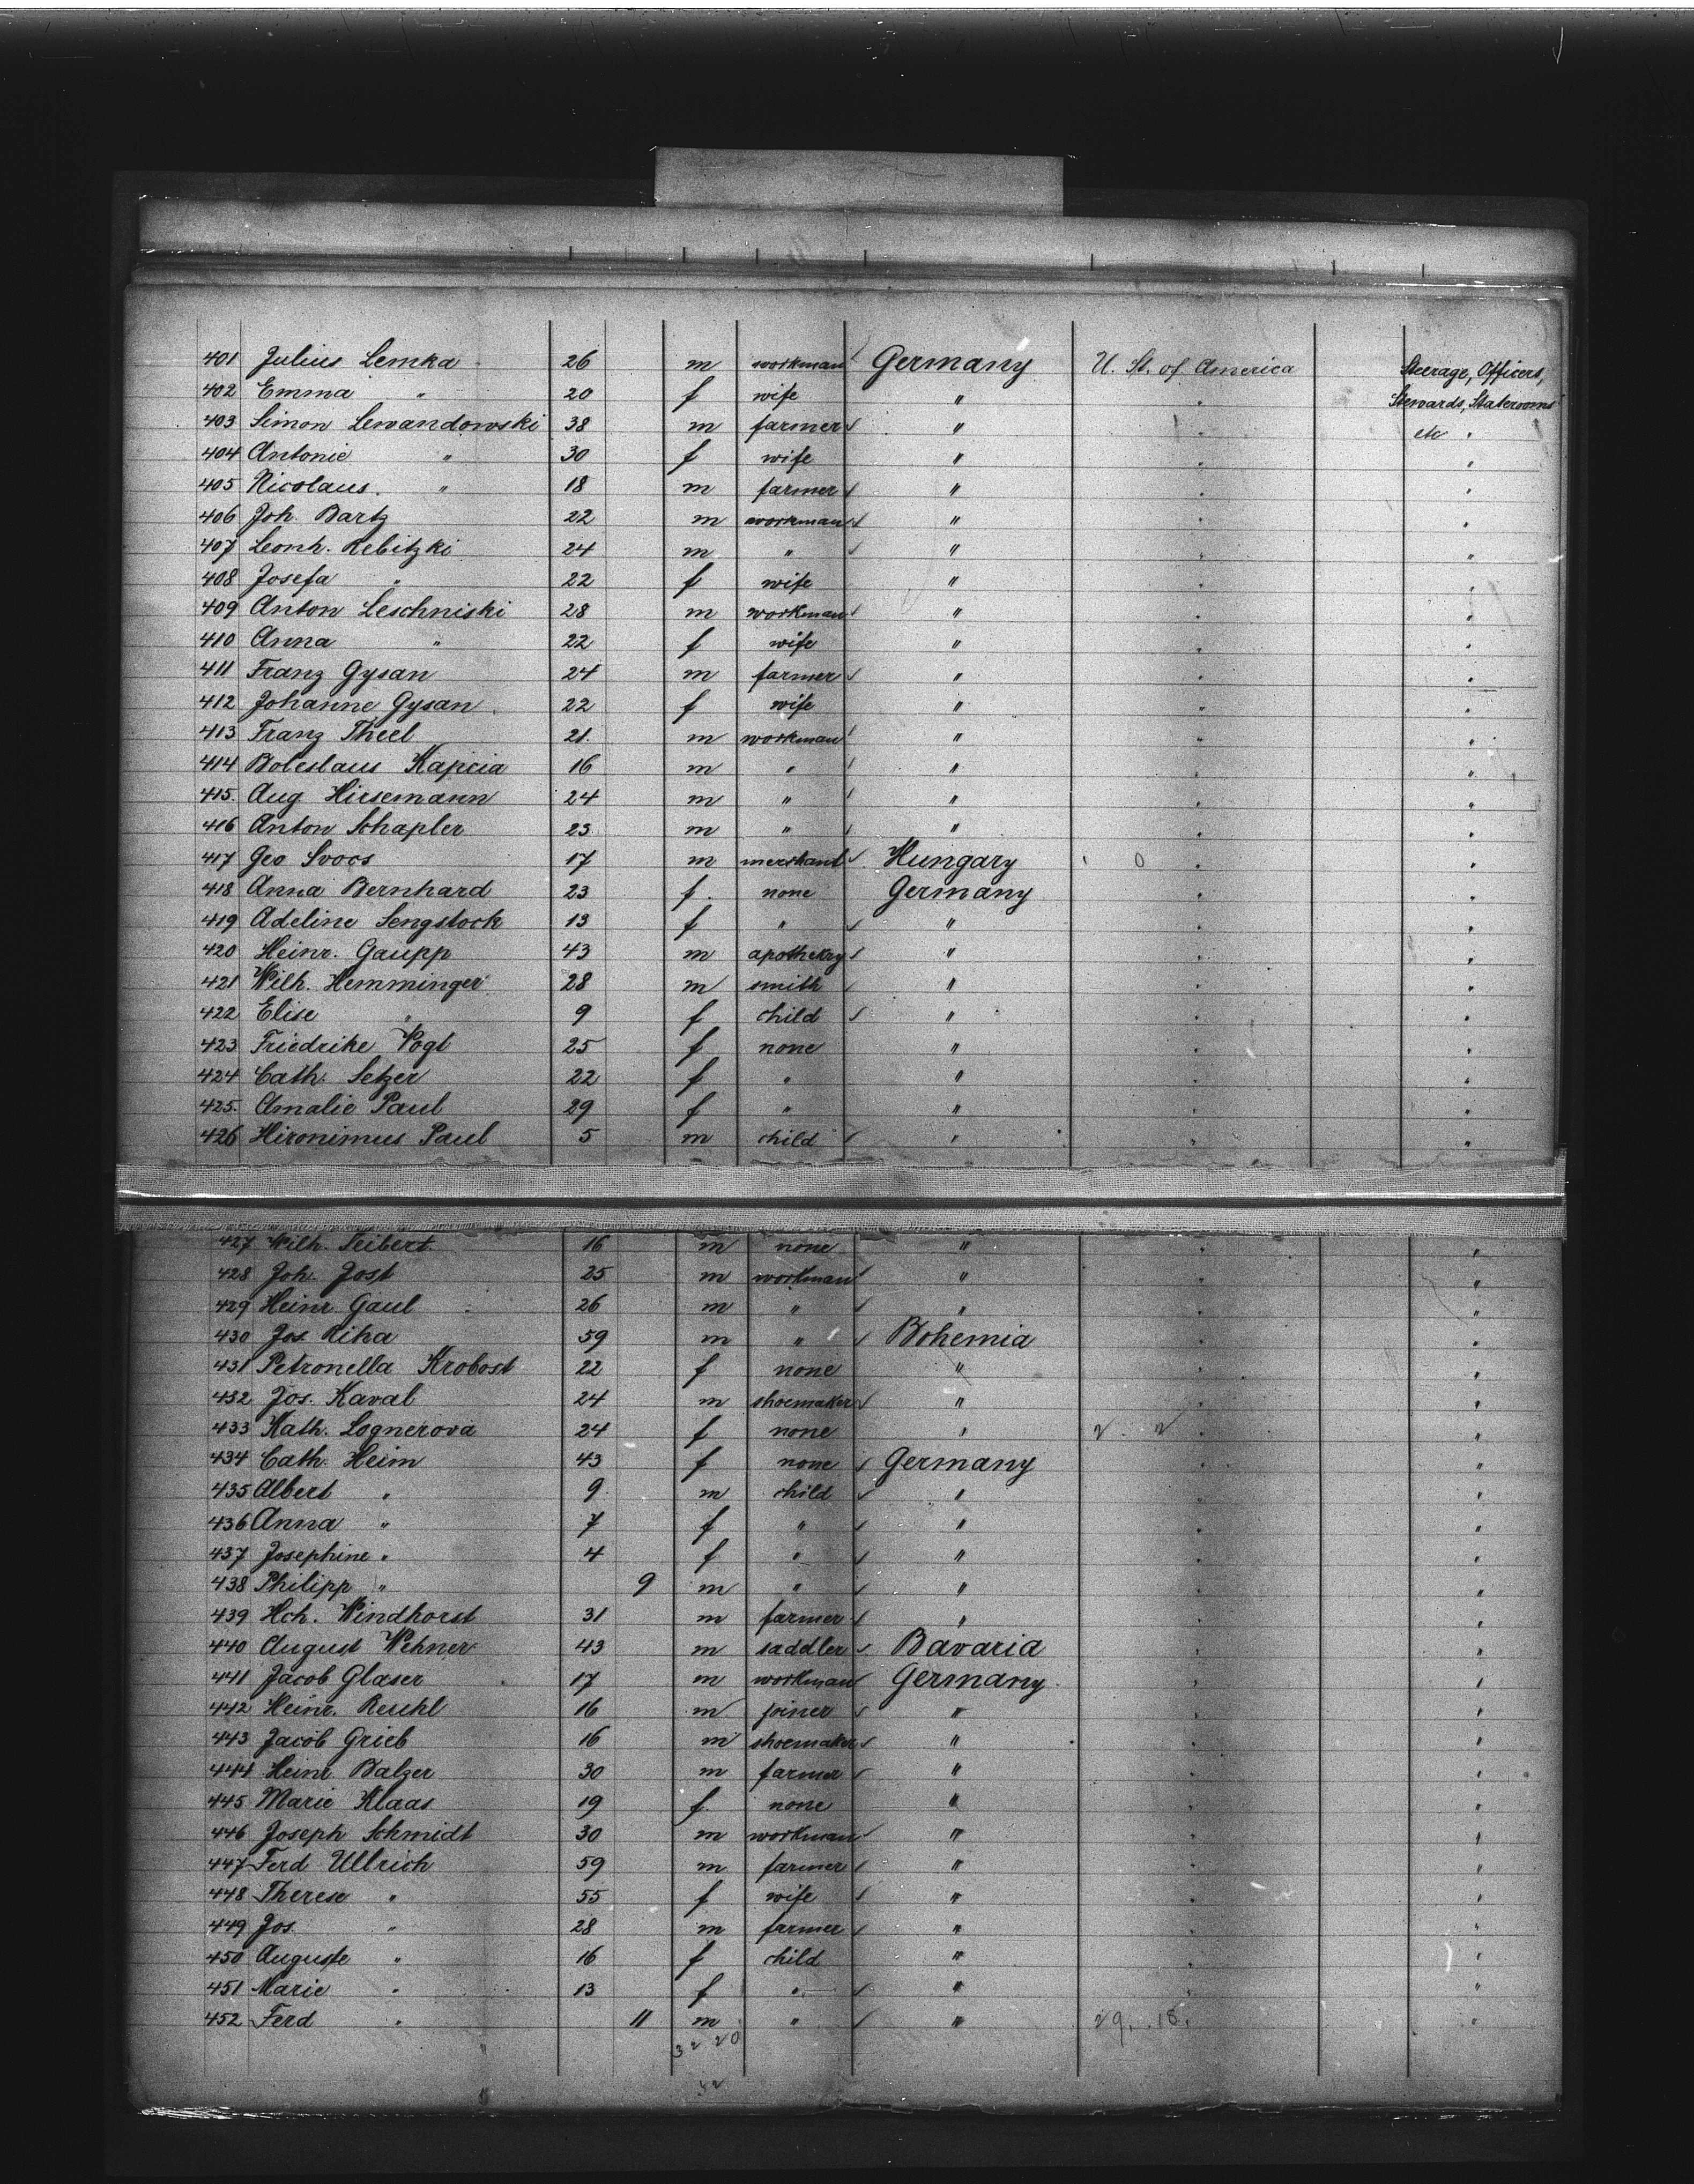 401 Julius Lemka 26 m workman Germany U. St. of America Steerage, Officers,
402 Emma " 20 f wife " " Stewards, Staterooms
403 Simon Lewandowski 38 m farmer " " etc "
404 Antonie " 30 f wife " " "
405 Nicolaus " 18 m farmer " " "
406 Joh. Bartz 22 m workman " " "
407 Leonh. Rebitzki 24 m " " " "
408 Josefa " 22 f wife " " "
409 Anton Leschniski 28 m workman " " "
410 Anna " 22 f wife " " "
411 Franz Gysan 24 m farmer " " "
412 Johanne Gysan 22 f wife " " "
413 Franz Theel 21. m workman " " "
414 Boleslaus Kapcia 16 m " " " "
415. Aug Hirsemann 24 m " " " "
416 Anton Schapler 23 m " " " "
417 Geo Svocs 17 m merchant Hungary 0 " "
418 Anna Bernhard 23 f. none Germany " "
419 Adeline Sengstock 13 f " " " "
420 Heinr. Gaupp 43 m apothekry " " "
421 Wilh. Hemminger 28 m smith " " "
422 Elise " 9 f child " " "
423 Friedrike Vogt 25 f none " " "
424 Cath. Setzer 22 f " " " "
425. Amalie Paul 29 f " " " "
426 Hironimus Paul 5 m child " " "
427 Wilh. Seibert 16 m none " " "
428 Joh. Jost 25 m workman " " "
429 Heinr. Gaul 26 m " " " "
430 Jos. Riha 59 m " Bohemia " "
431 Petronella Krobost 22 f none " " "
432 Jos. Kaval 24 m shoemaker " " "
433 Kath. Lognerova 24 f none " 2 2 " "
434 Cath. Heim 43 f none Germany " "
435 Albert " 9 m child " " "
436 Anna " 7 f " " " "
437 Josephine " 4 f " " " "
438 Philipp " 9 m " " " "
439 Hch. Windhorst 31 m farmer " " "
440 August Wehner 43 m saddler Bavaria " "
441 Jacob Glaser 17 m workman Germany " "
442 Heinr. Reuhl 16 m joiner " " "
443 Jacob Grieb 16 m shoemaker " " "
444 Heinr. Balzer 30 m farmer " " "
445 Marie Klaas 19 f. none " " "
446 Joseph Schmidt 30 m workman " " "
447 Ferd Ullrich 59 m farmer " " "
448 Therese " 55 f wife " " "
449 Jos. " 28 m farmer " " "
450 Auguste " 16 f child " " "
451 Marie " 13 f " " " "
452 Ferd " 11 m " " 29. .18. "
32 20
52